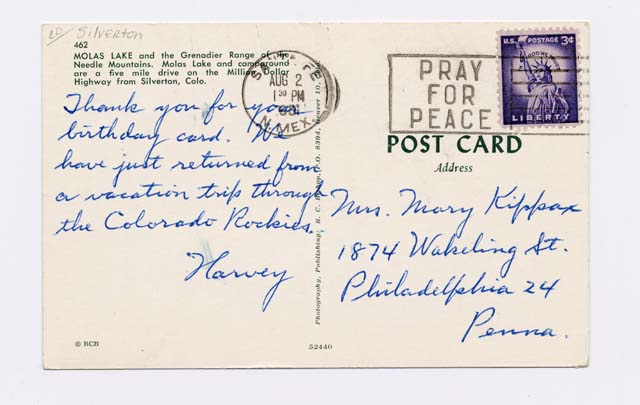 CO Silverton
462
MOLAS LAKE and the Grenadier Range of the
Needle Mountains. Molas Lake and campground
are a five mile drive on the Million Dollar
Highway from Silverton, Colo.
Thank you for your
birthday card. We
have just returned from
a vacation trip through
the Colorado Rockies.
Harvey
© RCB
Photography, Publishing: R. C. P.O. 8394, Denver 10,
52440
SANTA FE
AUG 2
1 30 PM
N. MEX.
PRAY
FOR
PEACE
U.S. POSTAGE 3¢
IN GOD WE TRUST
LIBERTY
POST CARD
Address
Mrs. Mary Kippax
1874 Wakeling St.
Philadelphia 24
Penna.